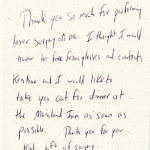 Thank you so much for performing
laser surgery on me. I thought I would
never be free from glasses and contacts.
Kristine and I would like to
take you out for dinner at
the Mainland Inn as soon as
possible. Thank you for your
gift of surgery.